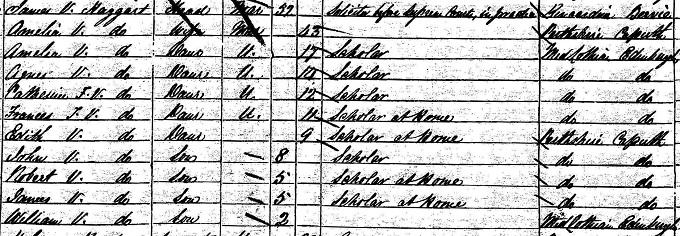 James V. Haggart Head Mar 52 Solicitor before Supreme Courts, in practice Kincardine Bervie
Amelia V. do Wife Mar 43 Perthshire Caputh
Amelia V. do Daur U. 17 Scholar Midlothian Edinburgh
Agnes V. do Daur U. 14 Scholar do do
Catherine F. V. do Daur U. 12 Scholar do do
Frances F. V. do Daur U. 11 Scholar at Home do do
Edith V. do Daur 9 Scholar at Home Perthshire Caputh
John V. do Son 8 Scholar do do
Robert V. do Son 5 Scholar at Home do do
James V. do Son 5 Scholar at Home do do
William V. do Son 2 Midlothian Edinburgh